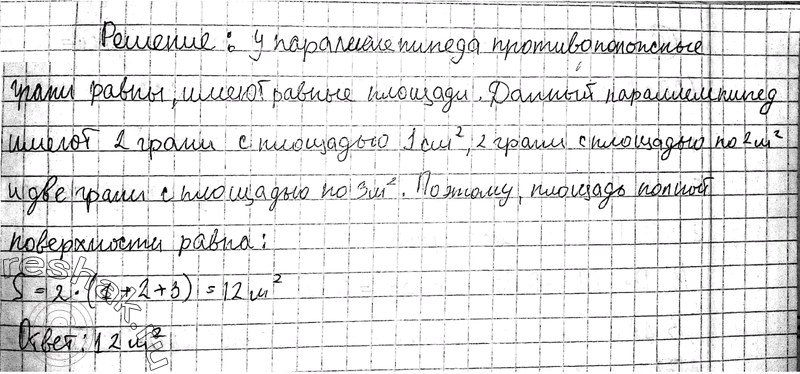 Решение: у параллелепипеда противоположные
грани равны, имеют равные площади. Данный параллелепипед
имеют 2 грани с площадью 1см², 2 грани с площадью по 2м²
и две грани с площадью по 3м². Поэтому, площадь полной
поверхности равна:
S = 2·(1+2+3) = 12м²
Ответ: 12м²
reshak.ru